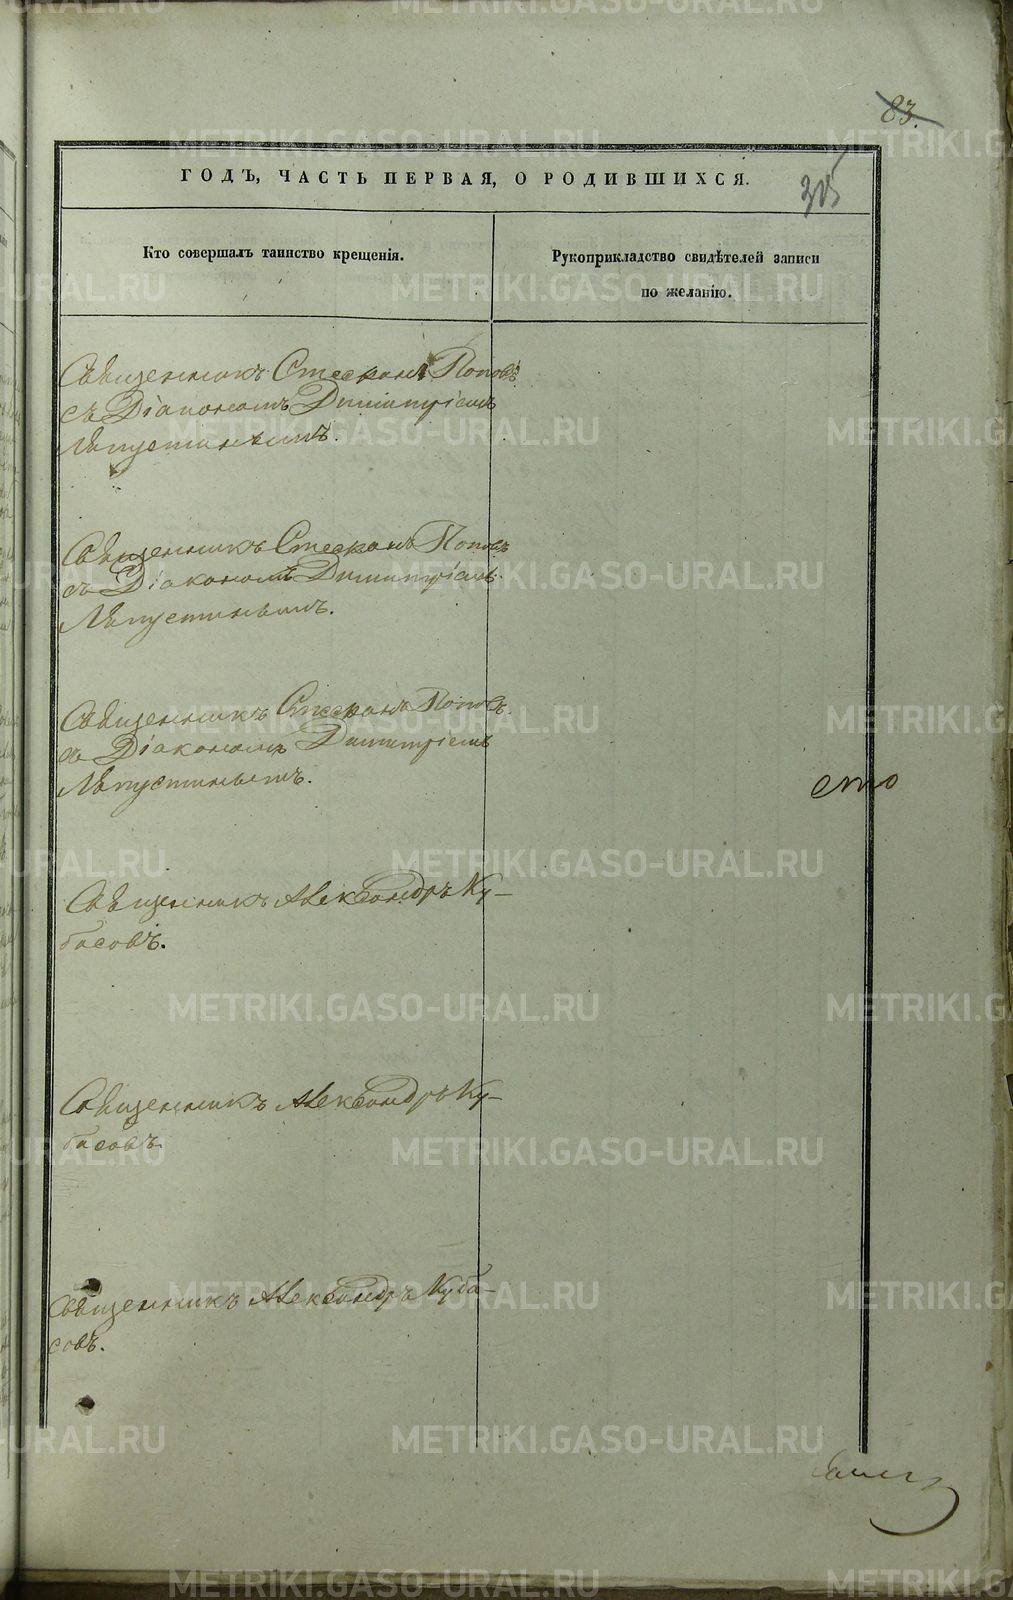 83.
ГОДЪ, ЧАСТЬ ПЕРВАЯ, О РОДИВШИХСЯ.
315
Кто совершалъ таинство крещенія.
Рукоприкладство свидѣтелей записи
по желанію.
Священникъ Стефанъ Поповъ
съ Діакономъ Димитріемъ
Ляпустинымъ.
Священникъ Стефанъ Поповъ
съ Діакономъ Димитріемъ
Ляпустинымъ.
Священникъ Стефанъ Поповъ
съ Діакономъ Димитріемъ
Ляпустинымъ.
сто
Священникъ Александръ Ку-
басовъ.
Священникъ Александръ Ку-
басовъ
Священникъ Александръ Куба-
совъ.
METRIKI.GASO-URAL.RU